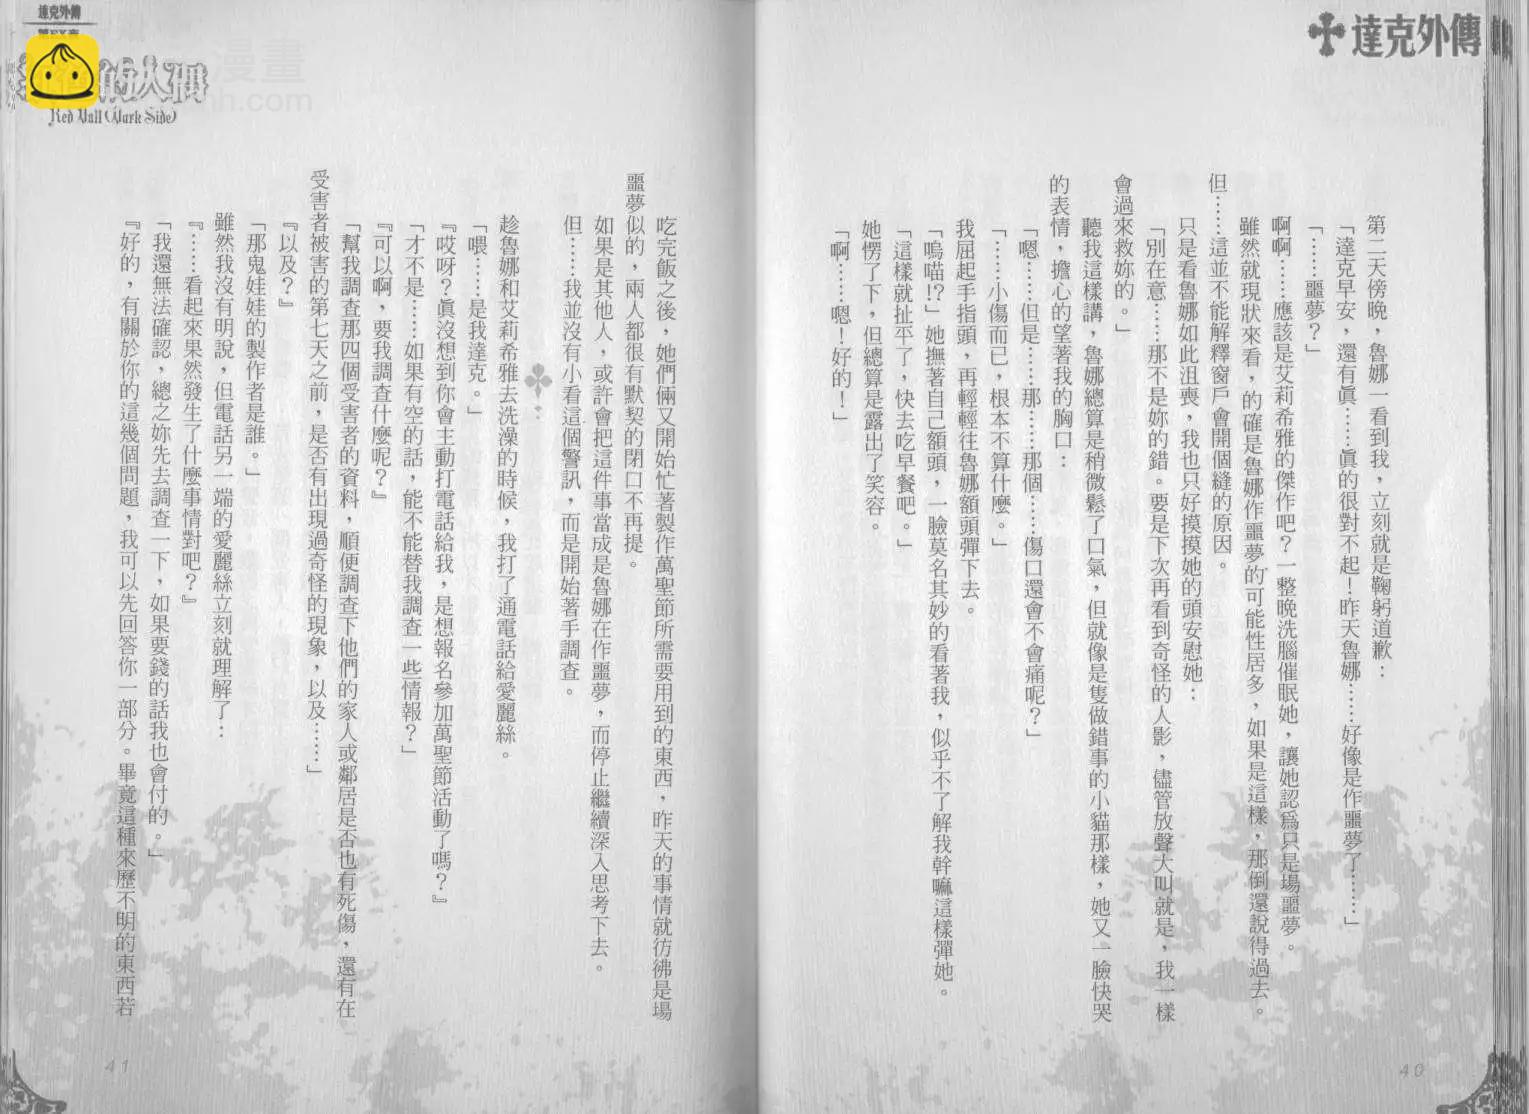 達克外傳
第二天傍晚，魯娜一看到我，立刻就是鞠躬道歉：
「達克早安，還有真……真的很對不起！昨天魯娜……好像是作噩夢了……」
「……噩夢？」
啊啊……應該是艾莉希雅的傑作吧？一整晚洗腦催眠她，讓她認爲只是場噩夢。
雖然就現狀來看，的確是魯娜作噩夢的可能性居多，如果是這樣，那倒還說得過去。
但……這並不能解釋窗戶會開個縫的原因。
只是看魯娜如此沮喪，我也只好摸摸她的頭安慰她：
「別在意……那不是妳的錯。要是下次再看到奇怪的人影，儘管放聲大叫就是，我一樣
會過來救妳的。」
聽我這樣講，魯娜總算是稍微鬆了口氣，但就像是隻做錯事的小貓那樣，她又一臉快哭
的表情，擔心的望著我的胸口：
「嗯……但是……那……那個……傷口還會不會痛呢？」
「……小傷而已，根本不算什麼。」
我屈起手指頭，再輕輕往魯娜額頭彈下去。
「嗚喵!?」她撫著自己額頭，一臉莫名其妙的看著我，似乎不了解我幹嘛這樣彈她。
「這樣就扯平了，快去吃早餐吧。」
她愣了下，但總算是露出了笑容。
「啊……嗯！好的！」
40
達克外傳
的人偶
吃完飯之後，她們倆又開始忙著製作萬聖節所需要用到的東西，昨天的事情就彷彿是場
噩夢似的，兩人都很有默契的閉口不再提。
如果是其他人，或許會把這件事當成是魯娜在作噩夢，而停止繼續深入思考下去。
但……我並沒有小看這個警訊，而是開始著手調查。
趁魯娜和艾莉希雅去洗澡的時候，我打了通電話給愛麗絲。
「喂……是我達克。」
『哎呀？眞沒想到你會主動打電話給我，是想報名參加萬聖節活動了嗎？』
「才不是……如果有空的話，能不能替我調查一些情報？」
『可以啊，要我調查什麼呢？』
「幫我調查那四個受害者的資料，順便調查下他們的家人或鄰居是否也有死傷，還有在
受害者被害的第七天之前，是否有出現過奇怪的現象，以及……」
『以及？』
「那鬼娃娃的製作者是誰。」
雖然我沒有明說，但電話另一端的愛麗絲立刻就理解了：
『……看起來果然發生了什麼事情對吧？』
「我還無法確認，總之妳先去調查一下，如果要錢的話我也會付的。」
『好的，有關於你的這幾個問題，我可以先回答你一部分。畢竟這種來歷不明的東西若
41